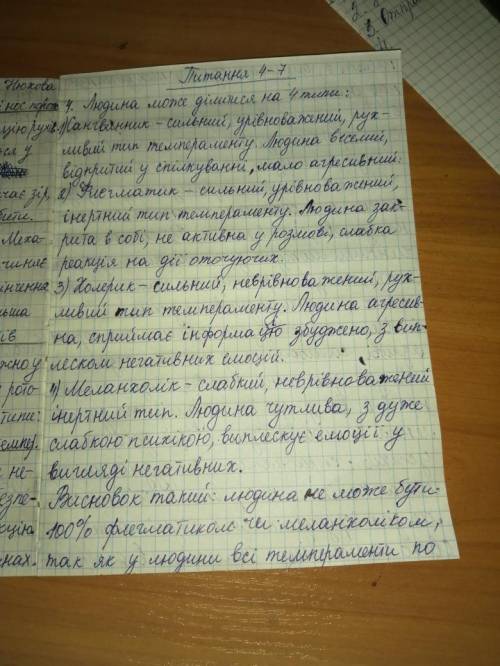 Питання 4-7
4. Людина може ділитися на 4 типи:
1) Сангвінник - сильний, урівноважений, рух-
ливий тип темпераменту. Людина веселий,
відкритий у спілкуванні, мало агресивний.
2) Флегматик - сильний, урівноважений,
інертний тип темпераменту. Людина зак-
рита в собі, не активна у розмові, слабка
реакція на дії оточуючих.
3) Холерик - сильний, неврівноважений, рух-
ливий тип темпераменту. Людина агресив-
на, сприймає інформацію збуджено, з вип-
леском негативних емоцій.
4) Меланхолік - слабкий, неврівноважений
інертний тип. Людина чутлива, з дуже
слабкою психікою, виплескує емоції у
вигляді негативних.
Висновок такий: людина не може бути
100% флегматиком чи меланхоліком,
так як у людини всі темпераменти по
Нюхова
рухи
у
зір,
Меха-
чиняє
ів
рото-
типи:
темпу.
не-
безпе-
кцію
нах.